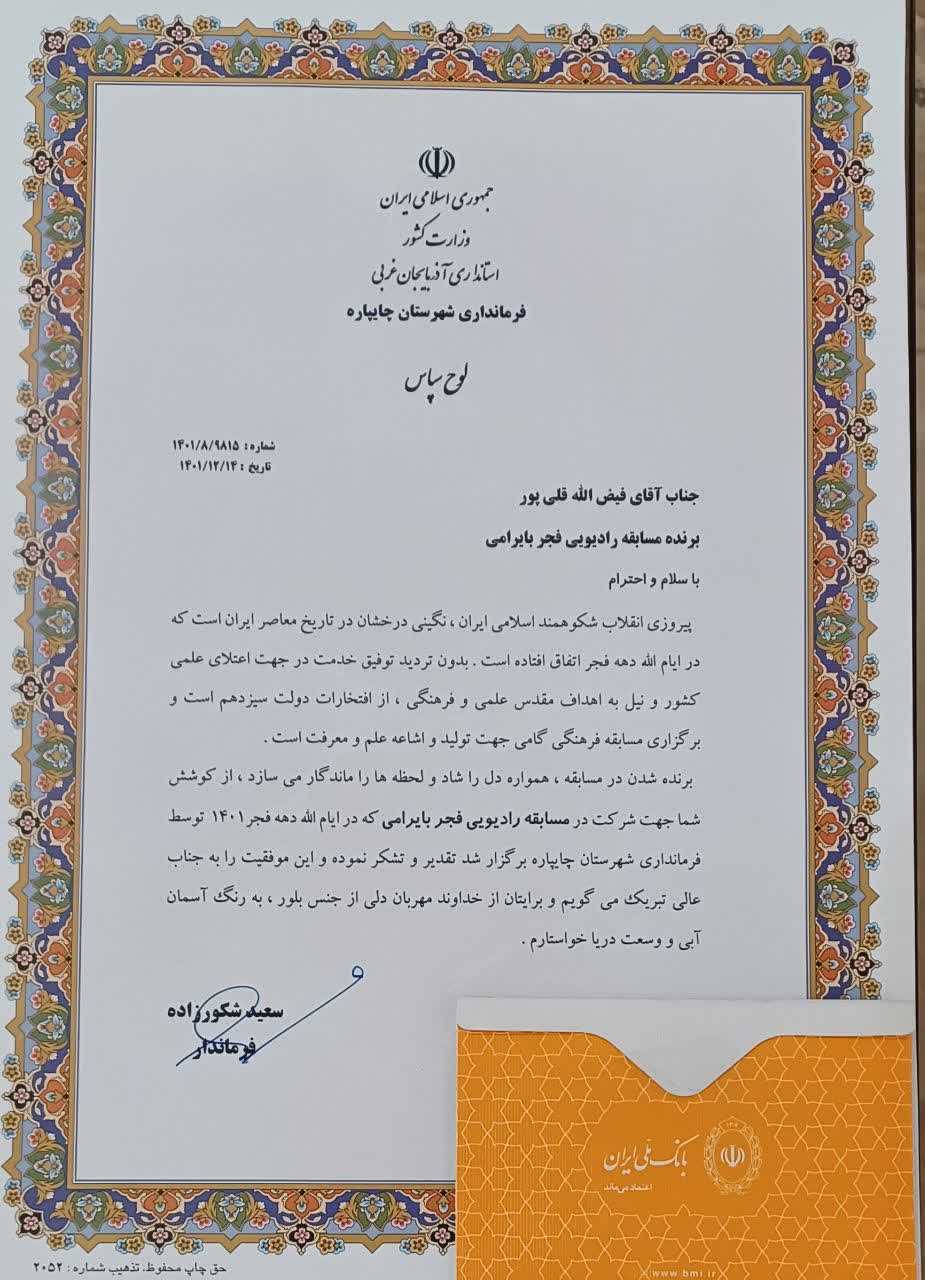 جمهوری اسلامی ایران
وزارت کشور
استانداری آذربایجان غربی
فرمانداری شهرستان چایپاره
لوح سپاس
شماره: ۱۴۰۱/۸/۹۸۱۵
تاریخ : ۱۴۰۱/۱۲/۱۴
جناب آقای فیض الله قلی پور
برنده مسابقه رادیویی فجر بایرامی
با سلام و احترام
پیروزی انقلاب شکوهمند اسلامی ایران ، نگینی درخشان در تاریخ معاصر ایران است که
در ایام الله دهه فجر اتفاق افتاده است . بدون تردید توفیق خدمت در جهت اعتلای علمی
کشور و نیل به اهداف مقدس علمی و فرهنگی ، از افتخارات دولت سیزدهم است و
برگزاری مسابقه فرهنگی گامی جهت تولید و اشاعه علم و معرفت است .
برنده شدن در مسابقه ، همواره دل را شاد و لحظه ها را ماندگار می سازد ، از کوشش
شما جهت شرکت در مسابقه رادیویی فجر بایرامی که در ایام الله دهه فجر۱۴۰۱ توسط
فرمانداری شهرستان چایپاره برگزار شد تقدیر و تشکر نموده و این موفقیت را به جناب
عالی تبریک می گویم و برایتان از خداوند مهربان دلی از جنس بلور ، به رنگ آسمان
آبی و وسعت دریا خواستارم .
سعید شکورزاده
فرماندار
بانک ملی ایران
اعتماد می‌ماند
www.bmi.ir
حق چاپ محفوظ، تذهیب شماره : ۲۰۵۲